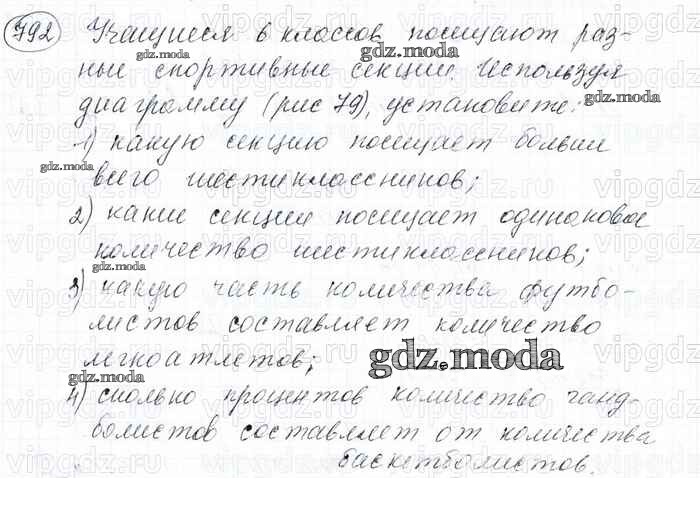 792 Учащиеся 6 классов посещают раз-
ные спортивные секции. Используя
диаграмму (рис 79), установите:
1) какую секцию посещает больше
всего шестиклассников;
2) какие секции посещает одинаковое
количество шестиклассников;
3) какую часть количества футбо-
листов составляет количество
легкоатлетов;
4) сколько процентов количество ганд-
болистов составляет от количества
баскетболистов.
gdz.moda
gdz.moda
gdz.moda
gdz.moda
gdz.moda
gdz.moda
gdz.moda
vipgdz.ru